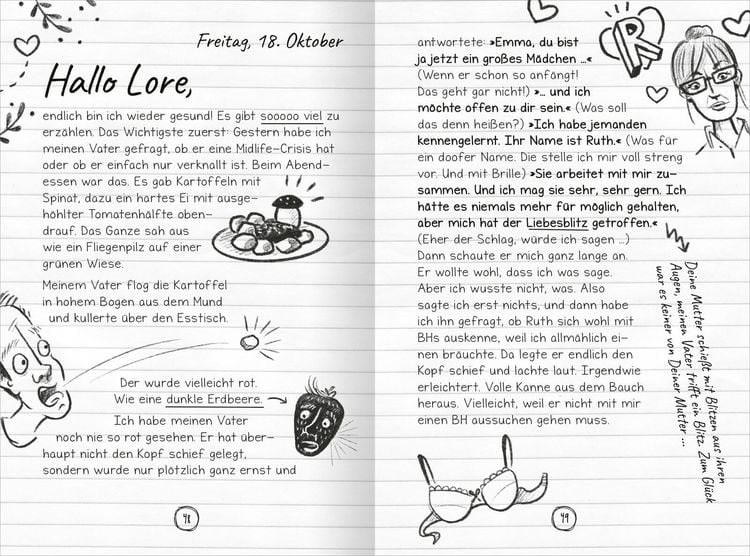 Freitag, 18. Oktober
Hallo Lore,
endlich bin ich wieder gesund! Es gibt sooooo viel zu
erzählen. Das Wichtigste zuerst: Gestern habe ich
meinen Vater gefragt, ob er eine Midlife-Crisis hat
oder ob er einfach nur verknallt ist. Beim Abend-
essen war das. Es gab Kartoffeln mit
Spinat, dazu ein hartes Ei mit ausge-
höhlter Tomatenhälfte oben-
drauf. Das Ganze sah aus
wie ein Fliegenpilz auf einer
grünen Wiese.
Meinem Vater flog die Kartoffel
in hohem Bogen aus dem Mund
und kullerte über den Esstisch.
Der wurde vielleicht rot.
Wie eine dunkle Erdbeere.
Ich habe meinen Vater
noch nie so rot gesehen. Er hat über-
haupt nicht den Kopf schief gelegt,
sondern wurde nur plötzlich ganz ernst und
48
antwortete: »Emma, du bist
ja jetzt ein großes Mädchen …«
(Wenn er schon so anfängt!
Das geht gar nicht!) »… und ich
möchte offen zu dir sein.« (Was soll
das denn heißen?) »Ich habe jemanden
kennengelernt. Ihr Name ist Ruth.« (Was für
ein doofer Name. Die stelle ich mir voll streng
vor. Und mit Brille) »Sie arbeitet mit mir zu-
sammen. Und ich mag sie sehr, sehr gern. Ich
hätte es niemals mehr für möglich gehalten,
aber mich hat der Liebesblitz getroffen.«
(Eher der Schlag, würde ich sagen …)
Dann schaute er mich ganz lange an.
Er wollte wohl, dass ich was sage.
Aber ich wusste nicht, was. Also
sagte ich erst nichts, und dann habe
ich ihn gefragt, ob Ruth sich wohl mit
BHs auskenne, weil ich allmählich ei-
nen bräuchte. Da legte er endlich den
Kopf schief und lachte laut. Irgendwie
erleichtert. Volle Kanne aus dem Bauch
heraus. Vielleicht, weil er nicht mit mir
einen BH aussuchen gehen muss.
R
Deine Mutter schießt mit Blitzen aus ihren
Augen, meinen Vater trifft ein Blitz. Zum Glück
war es keiner von Deiner Mutter …
49